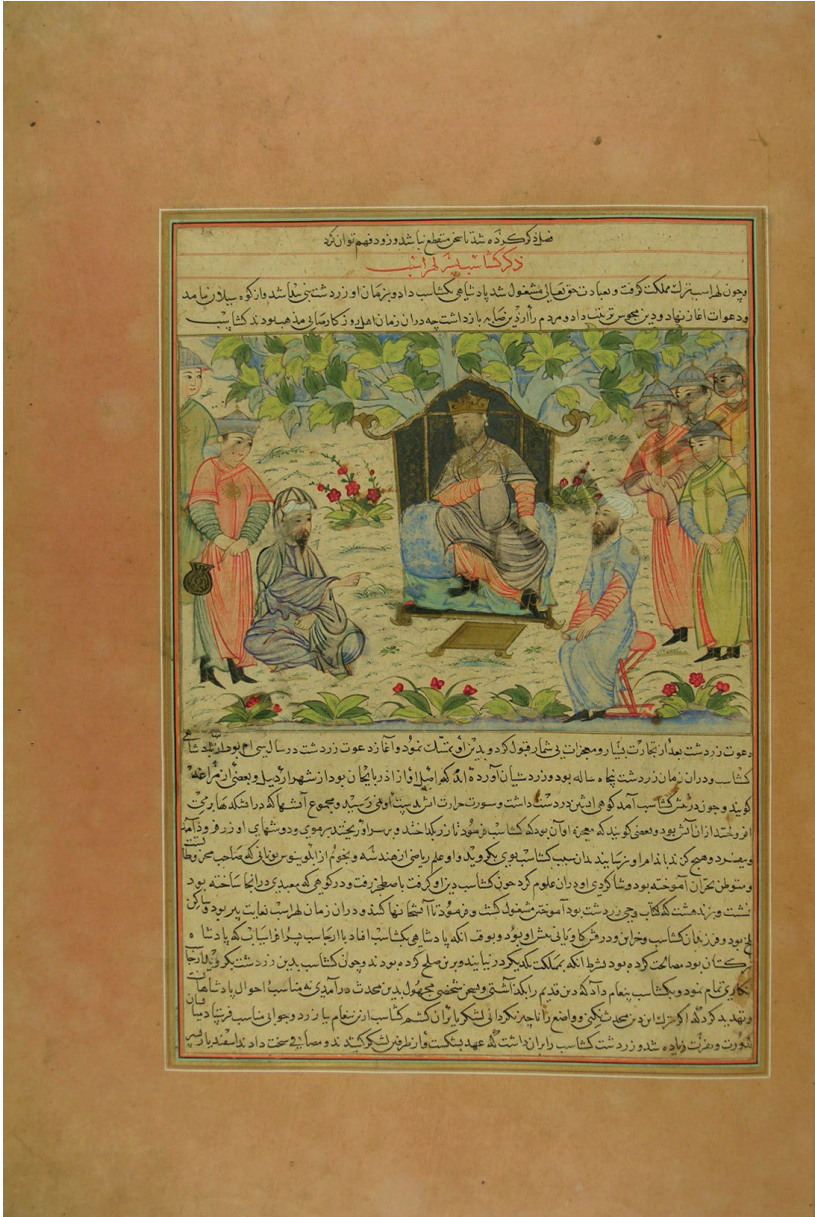 فصل ذکر کرده شد تا سخن منقطع نباشد و زود فهم توان کرد
ذکر کشتاسب پسر لهراسب
و چون لهراسب ترک مملکت گرفت و بعبادت حق تعالی مشغول شد پادشاهی بکشتاسب داد و بزمان او زردشت پیدا شد و از کوه سبلان بامد
و دعوات اغاز نهاد و دین مجوس ترتیب داد و مردم را از دین صابیه بازداشت چه دران زمان اهل روزکار صابی مذهب بودند کشتاسب
دعوت زردشت بعد از تجارت بسیار و معجزات بی شمار قبول کرد و بدین او تمسک نمود و آغاز دعوت زردشت در سال سی ام بود از پادشاهی
کشتاسب و دران زمان زردشت پنجاه ساله بود و زردشتیان آورده اند که اصل او از اذربایجان بود از شهر اردبیل و بعضی از مراغه
کویند و چون در پیش کشتاسب آمد کوهی اتشین در دست داشت و سورت حرارت اتش بدست او نمی رسید و مجموع آتشها که در اتشکدها بر می
افروختند از ان آتش بود و بعضی کویند که معجزه او آن بود که کشتاسب فرمود تا زر بکداختند و بر سر او ریختند بر موی و دوشهای او زر فرود آمد
و بیفسرد و هیچ کزند باندام او نرسانید بدان سبب کشتاسب بوی بکروید و او علم ریاضی از هندسه و نجوم از ابلونیوس یونانی که صاحب
و متوطن بحران آموخته بود و شاکردی او دران علوم کرد چون کشتاسب دین او کرفت باصطخر رفت و در کوهی که معبدی در انجا ساخته بود
نشست و بزند هشت که کتاب وحی زردشت بود آموختن مشغول کشت و فرمود تا آتشخانها کنند و دران زمان لهراسب بغایت پیر بود و ساکن
بلخ بود و فرزندان کشتاسب و خزاین و درفش کاویانی پیش او بود و بوقت انکه پادشاهی بکشتاسب افتاد با ارجاسب پسر افراسیاب که پادشاه
ترکستان بود مصالحت کرده بود بشرط انکه بمملکت یکدیکر در نیایند و برین صلح کرده بودند و چون کشتاسب بدین زردشت بکروید ارجا
تمام نمود و بکشتاسب پیغام داد که دین قدیم را بکذاشتی و بسخن شخصی مجهول بدین محدث درآمدی نه مناسب احوال پادشاهانست
و تهدید کرد که اکر ترک این دین محدث نکنی و واضع را ناچیز نکردانی لشکر بایران کشم کشتاسب ازین پیغام بیازرد و جوابی مناسب فرستاد میان
شورت و نفرت زیاده شد و زردشت کشتاسب را بران داشت که عهد بشکست و از طرفین لشکر کشیدند و مصافی سخت دادند اسفندیار پسر